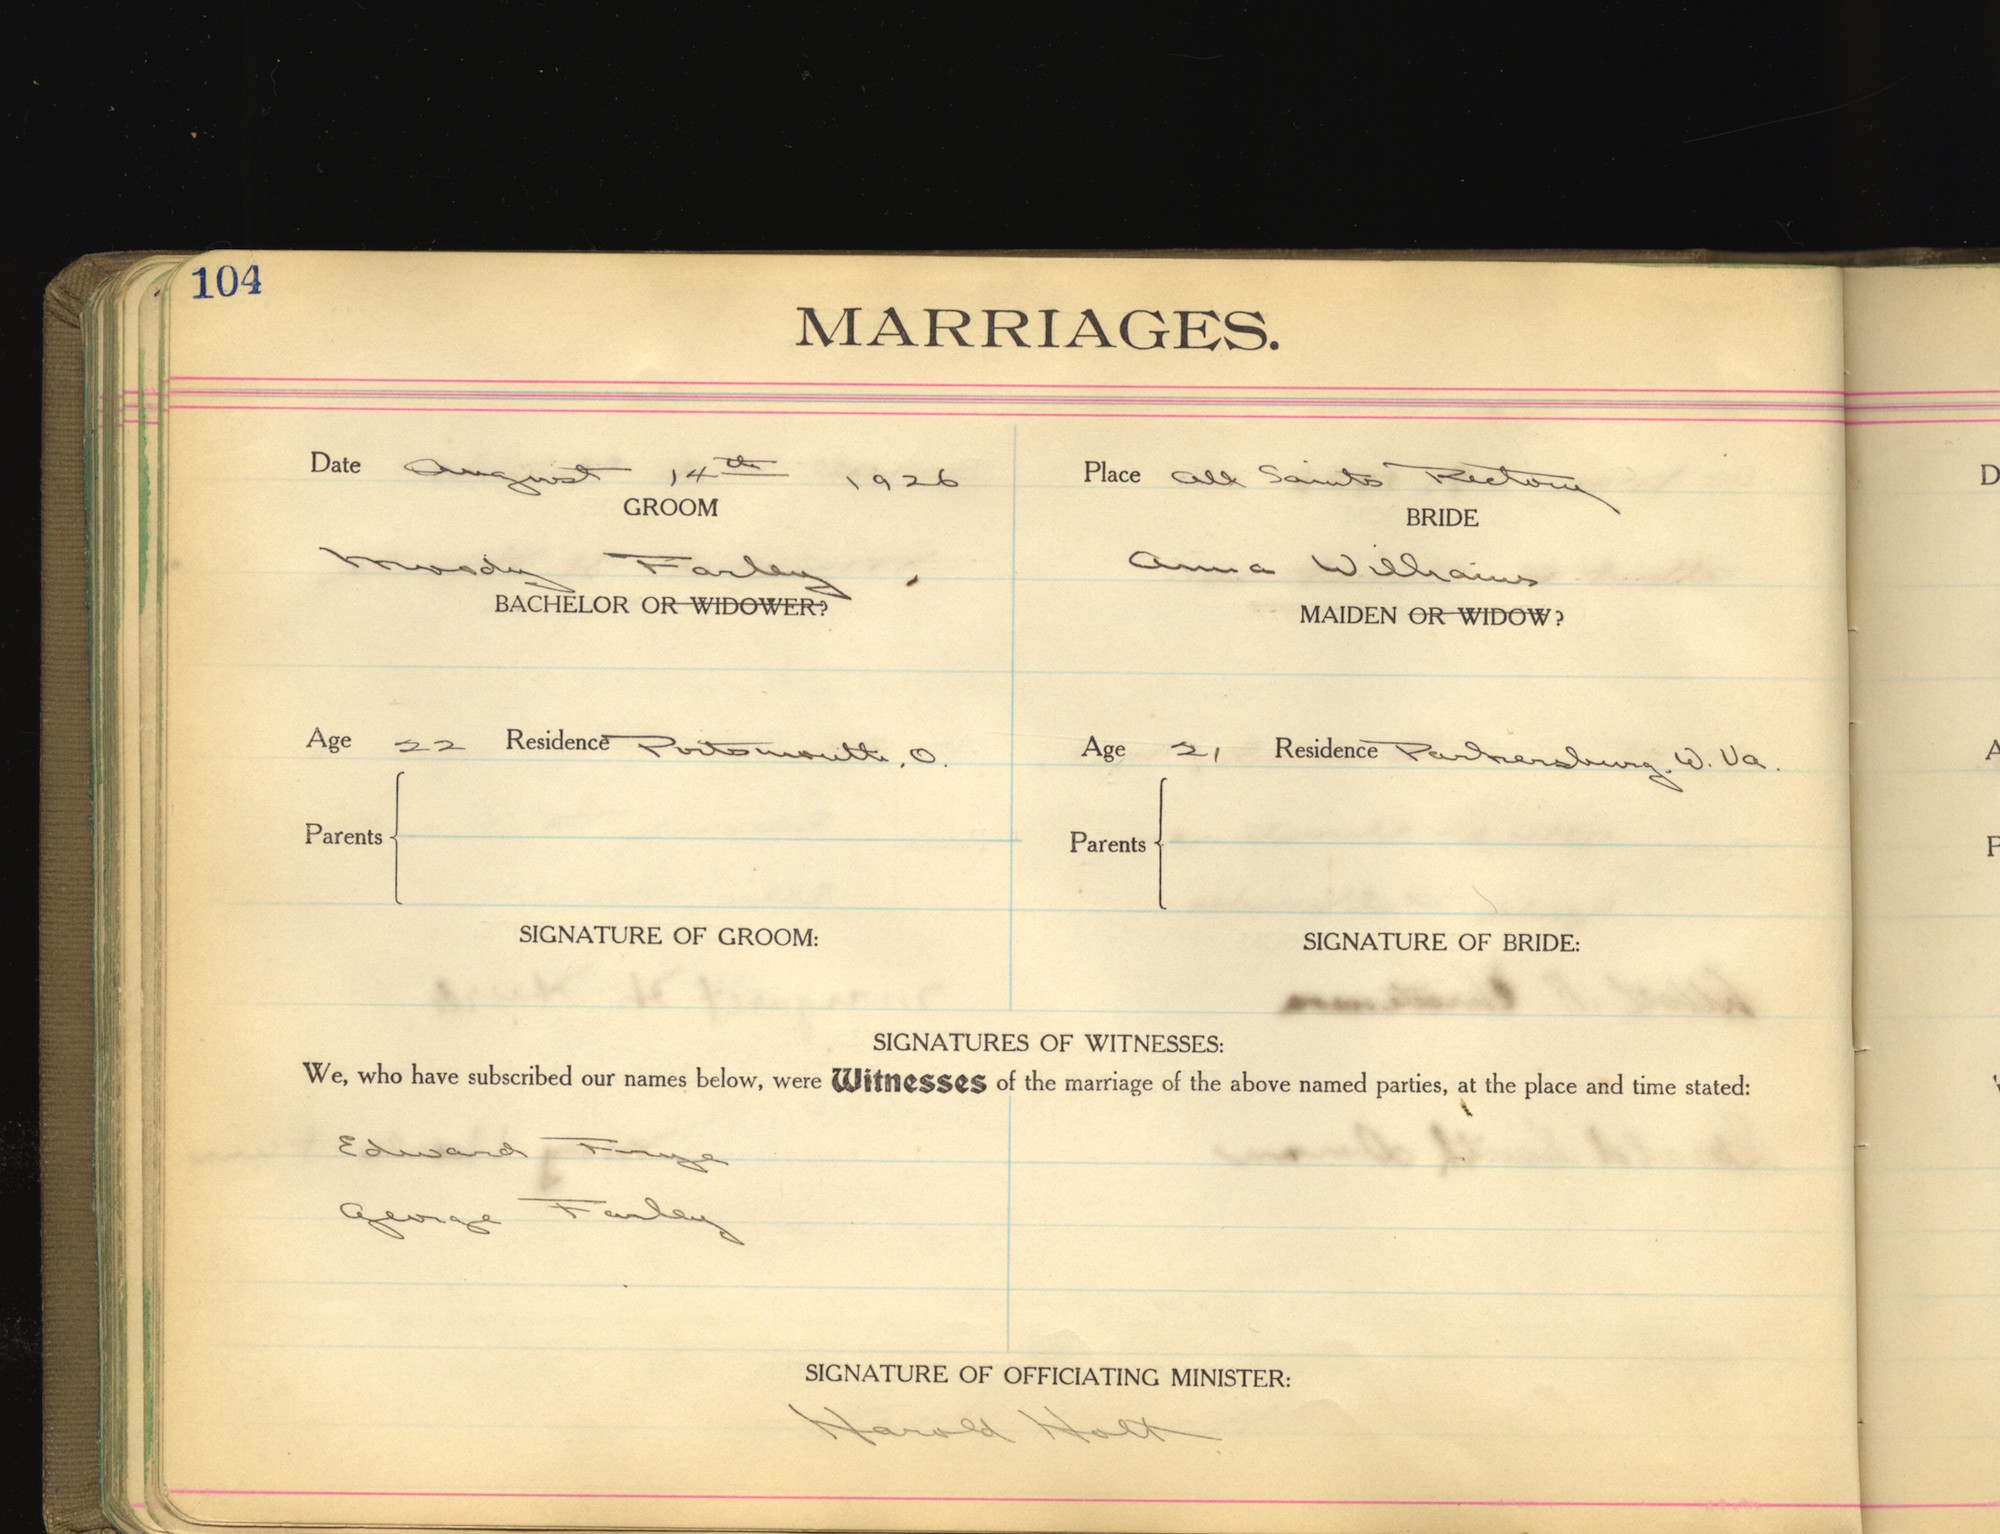 104
MARRIAGES.
Date August 14th 1926 Place All Saints Rectory
GROOM BRIDE
Moody Farley Anna Williams
BACHELOR OR WIDOWER? MAIDEN OR WIDOW?
Age 22 Residence Portsmouth, O. Age 21 Residence Parkersburg, W. Va.
Parents Parents
SIGNATURE OF GROOM: SIGNATURE OF BRIDE:
SIGNATURES OF WITNESSES:
We, who have subscribed our names below, were Witnesses of the marriage of the above named parties, at the place and time stated:
Edward Frye
George Farley
SIGNATURE OF OFFICIATING MINISTER:
Harold Holt